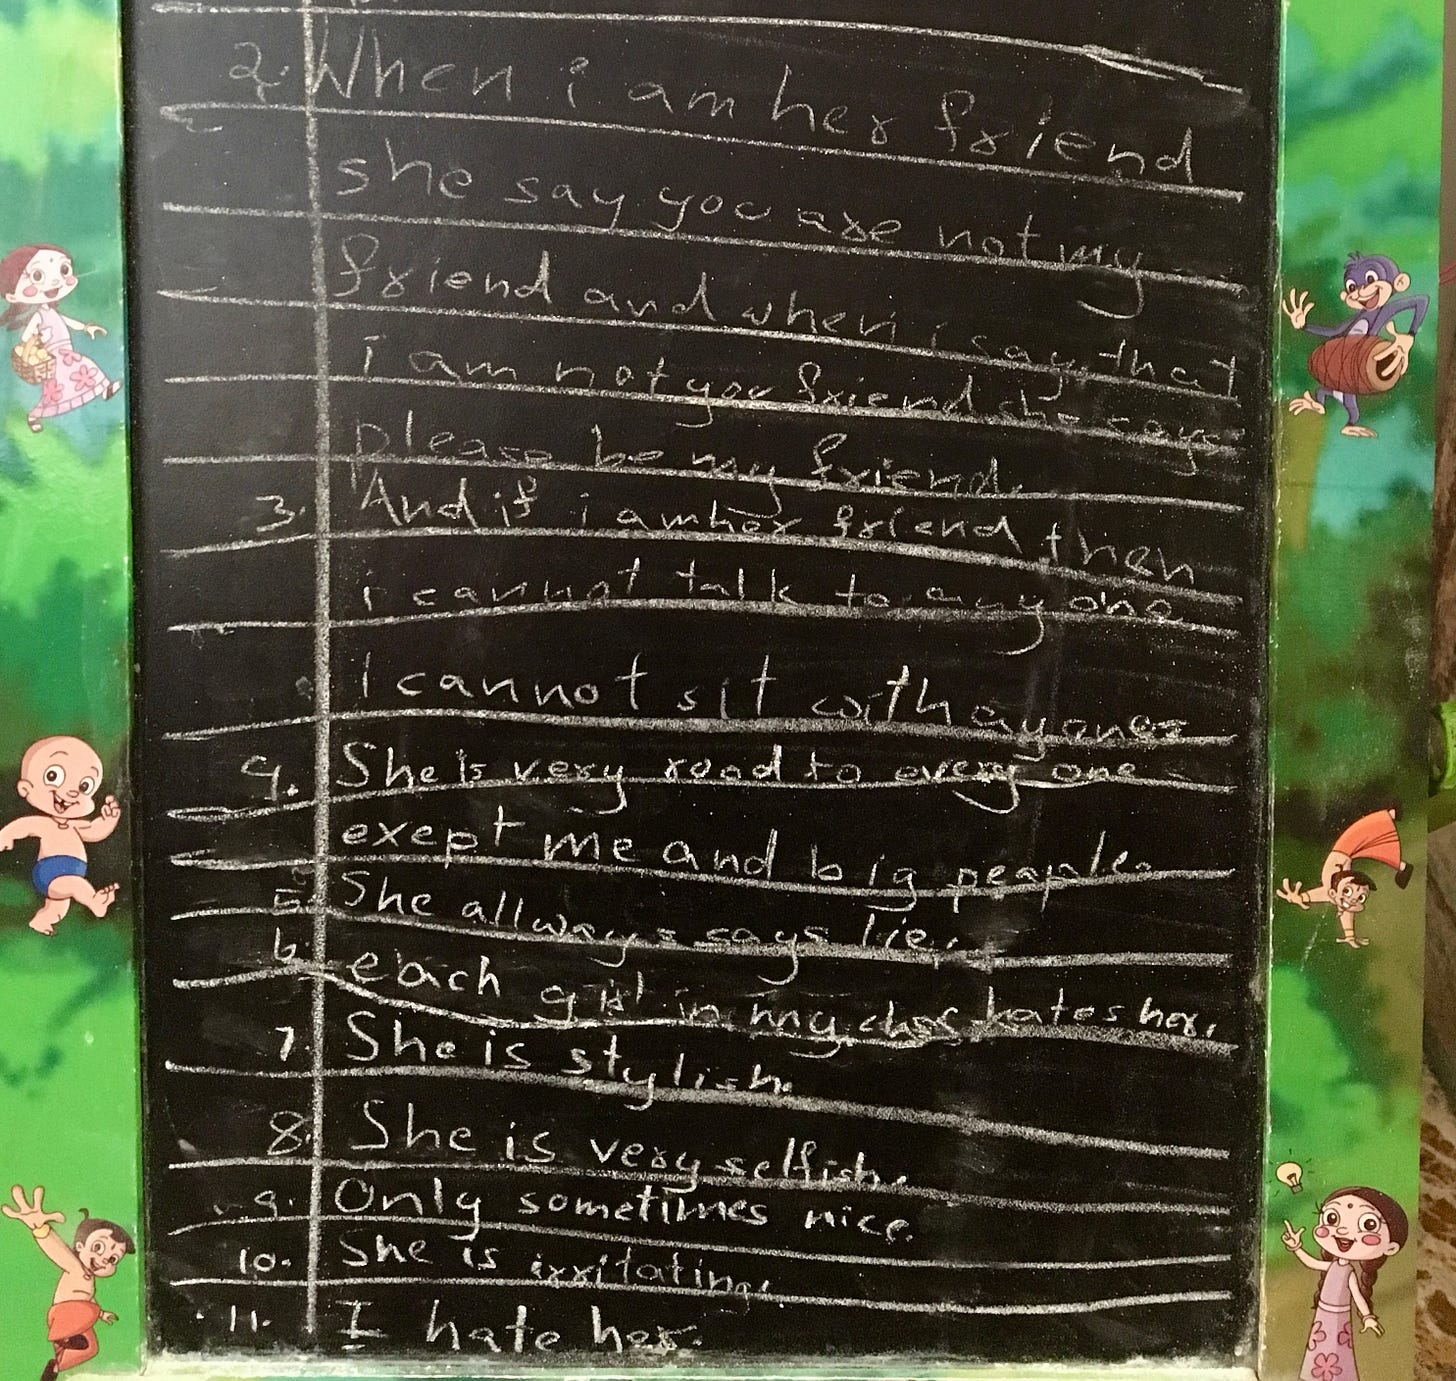 2. When i am her friend
she say you are not my
friend and when i say that
i am not your friend she says
please be my friend.
3. And if i am her friend then
i cannot talk to any one
I cannot sit with ayones
4. She is very rood to every one
exept me and big peaple.
5. She allways says lie.
6. each girl in my class hates her.
7. She is stylish.
8. She is very selfish.
9. Only sometimes nice.
10. She is irritating.
11. I hate her.